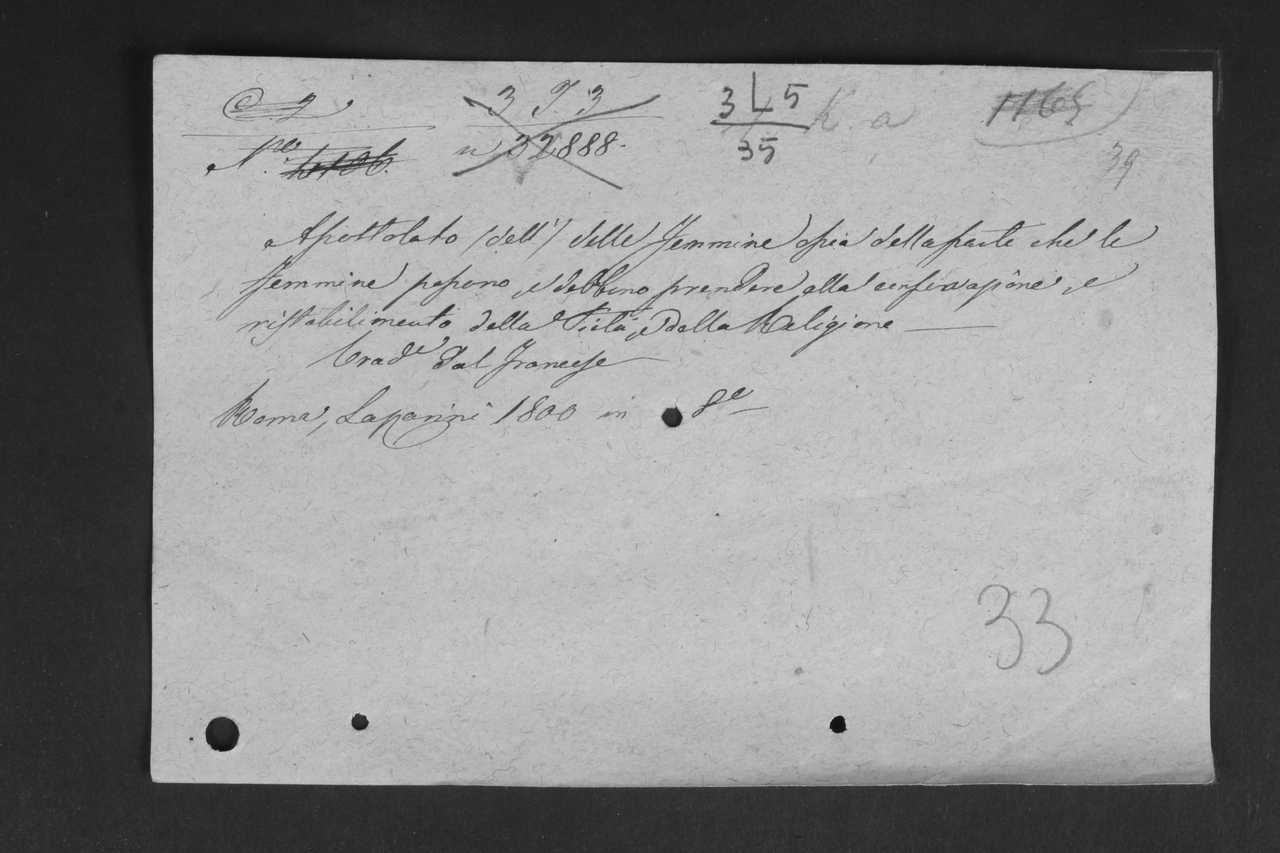 3 I 3
3 L 5 K. a 1165
N.ro n 32888.
35
39
Apostolato (dell') delle Femmine ossia della parte che le
femmine possono, e debbono prendere alla conservazione, e
ristabilimento della Pietà, e della Religione —
Trad.e dal Francese
Roma, Lazarini 1800 in 8.o
33